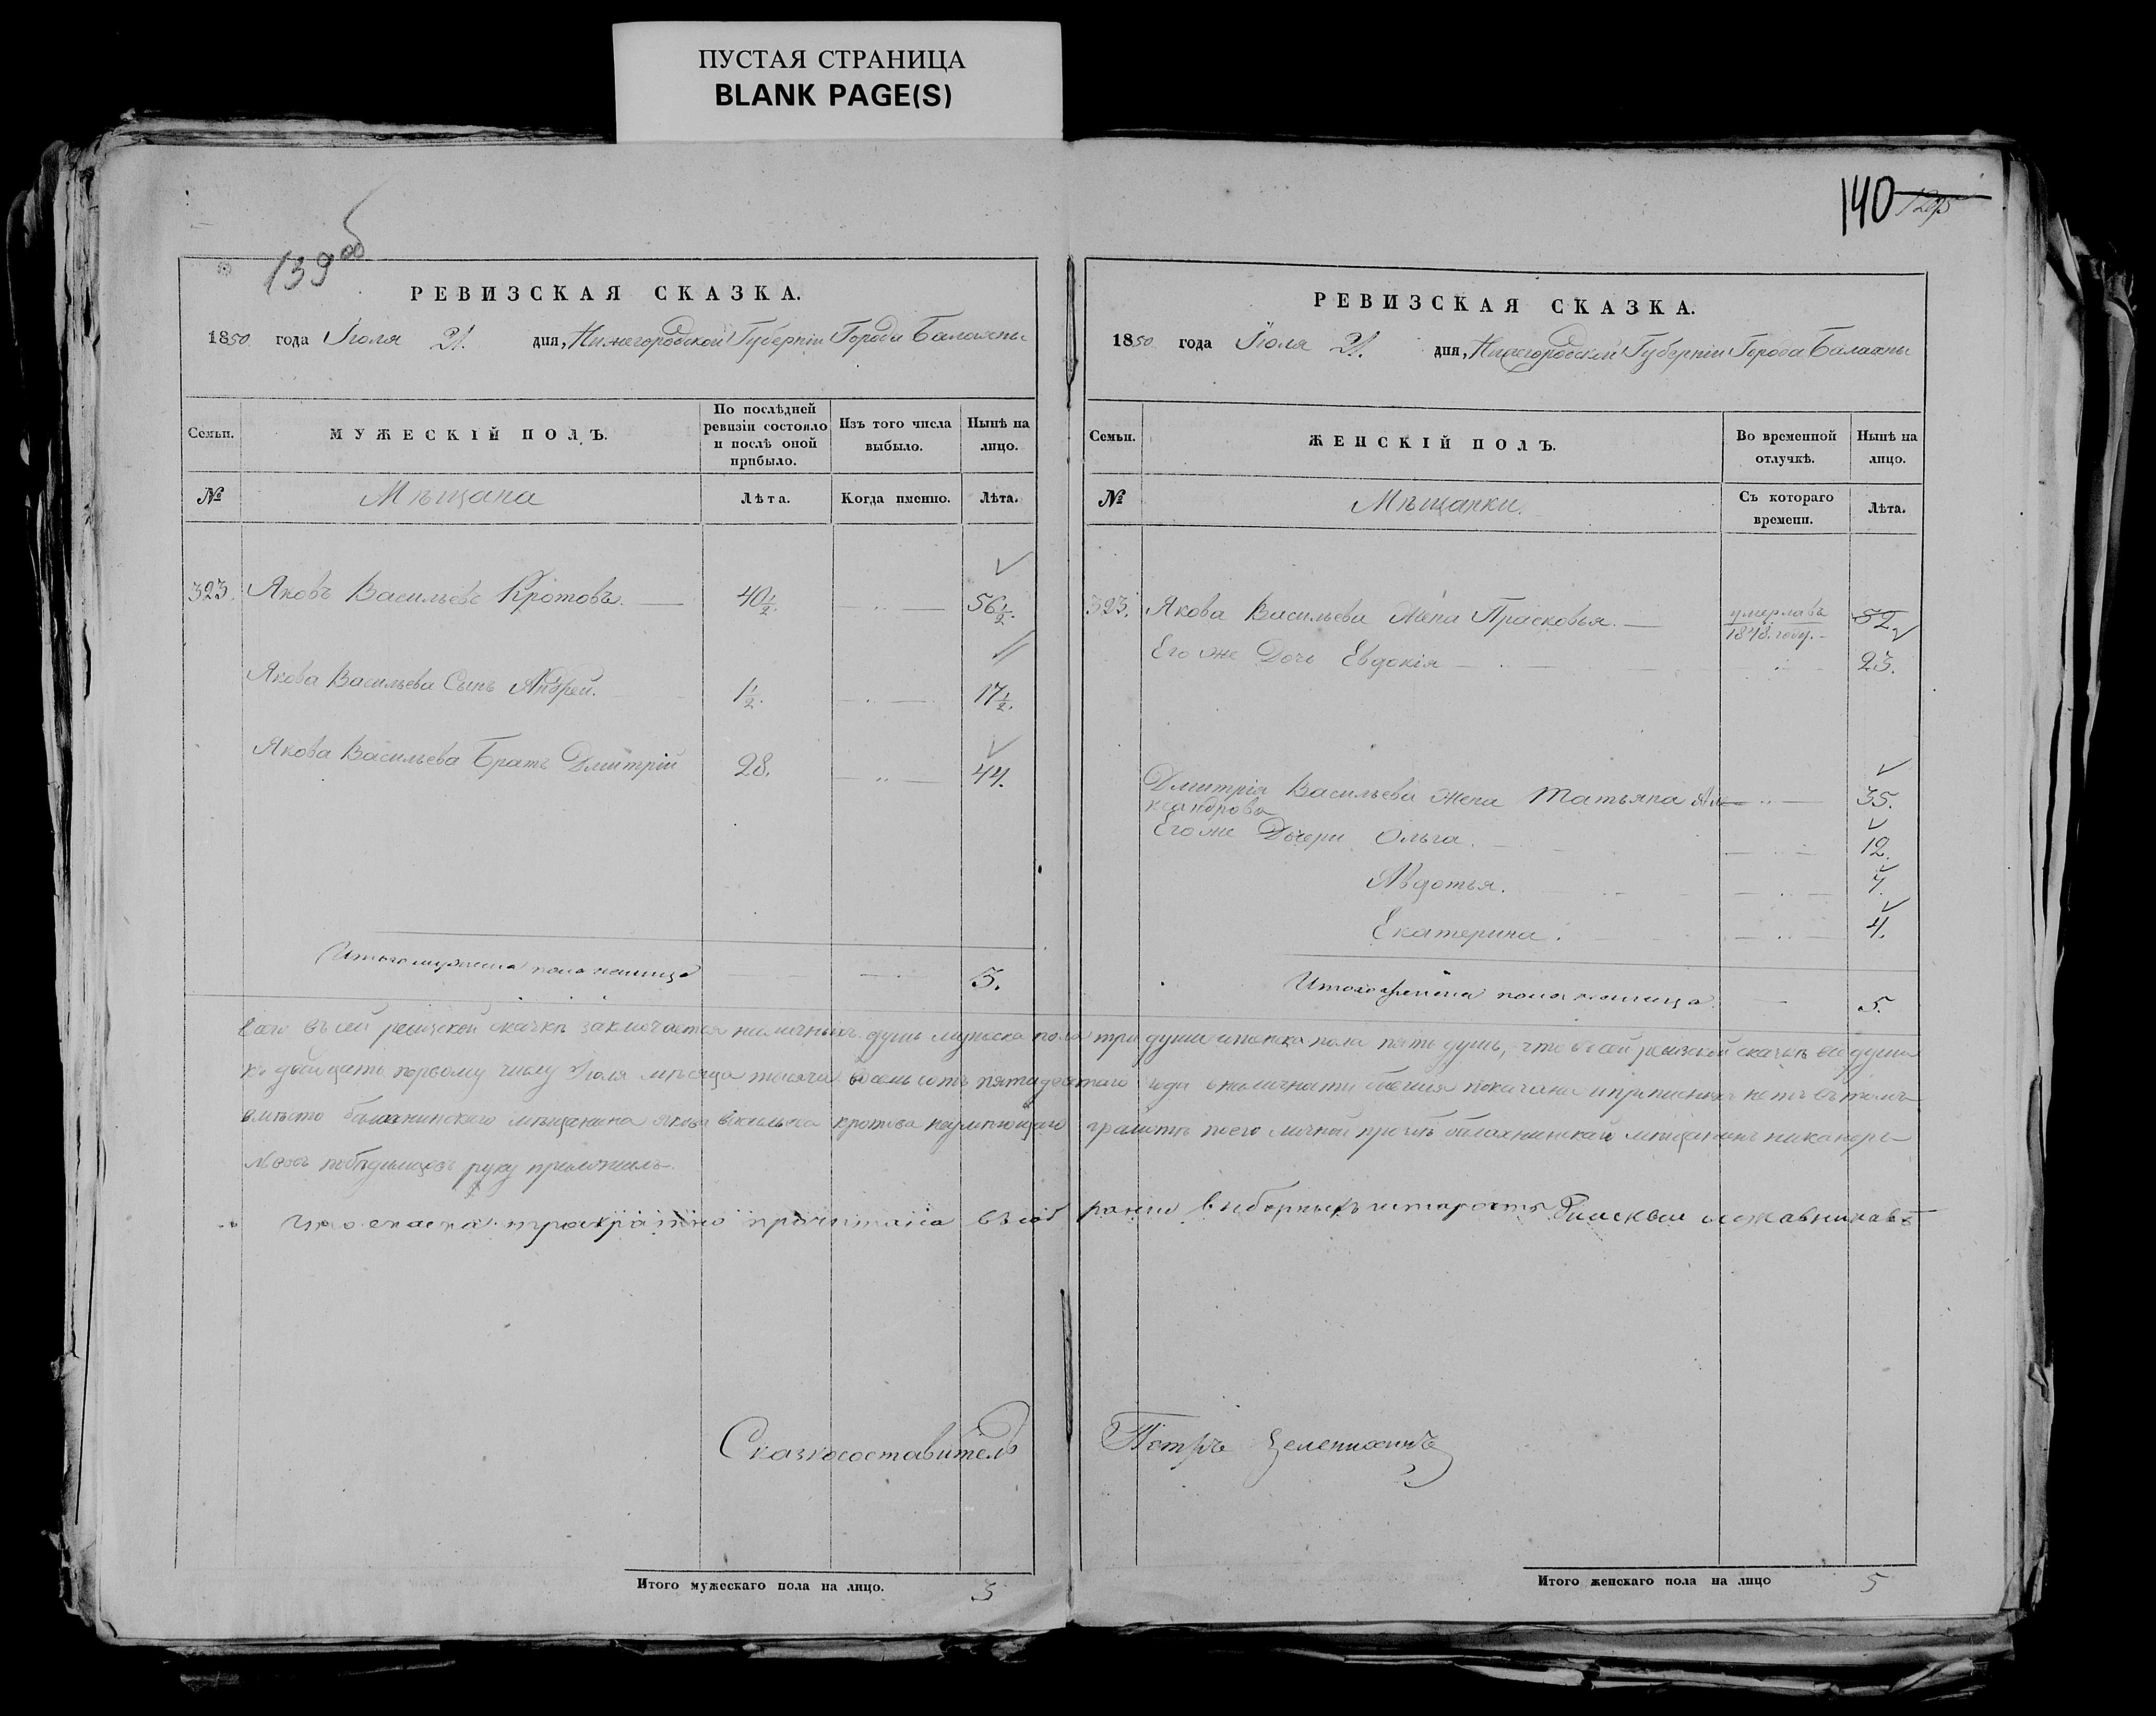 ПУСТАЯ СТРАНИЦА
BLANK PAGE(S)
139об
РЕВИЗСКАЯ СКАЗКА.
1850 года Іюля 21. дня, Нижегородской Губерніи Города Балахны
Семьи.
МУЖЕСКІЙ ПОЛЪ.
По послѣдней
ревизіи состояло
и послѣ оной
прибыло.
Изъ того числа
выбыло.
Нынѣ на
лицо.
№
Мѣщана
Лѣта.
Когда именно.
Лѣта.
323. Яковъ Васильевъ Кротовъ. 40 1/2. 56 1/2.
Якова Васильева Сынъ Андрей. 1 1/2. 17 1/2.
Якова Васильева Братъ Дмитрій 28. 44.
Итого мужеска пола налицо 3.
140 1295
РЕВИЗСКАЯ СКАЗКА.
1850 года Іюля 21. дня, Нижегородской Губерніи Города Балахны
Семьи.
ЖЕНСКІЙ ПОЛЪ.
Во временной
отлучкѣ.
Нынѣ на
лицо.
№
Мѣщанки.
Съ котораго
времени.
Лѣта.
323. Якова Васильева Жена Прасковья. умерла въ 1848. году. 52
Его же Дочь Евдокія 23.
Дмитрія Васильева жена Татьяна Але
ксандрова 35.
Его же Дочери Ольга. 12.
Авдотья. 7.
Екатерина. 4.
Итого женска пола налицо 5.
Всего въ сей ревизской скаскѣ заключается наличныхъ душъ мужеска пола три души женска пола пять душъ, что въ сей ревизской скаскѣ все души
къ двадцать первому числу Іюля мѣсяца тысяча восемь сотъ пятидесятаго года в наличности бывшия показаны и прописныхъ нетъ въ томъ
вмѣсто балахнинского мѣщанина Якова Васильева Кротова неумѣющаго грамотѣ по его личной прозьбѣ балахнинской мѣщанинъ никаноръ
руку приложилъ.
что скаска троекратно прочитана въ соб рании выборныхъ и старостъ
Сказкосоставитель Петръ
Итого мужескаго пола на лицо. 3
Итого женскаго пола на лицо 5